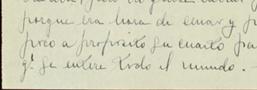 porque era hora de cenar y p
poco a proposito su cuarto pa
q.e se entere todo el mundo. -